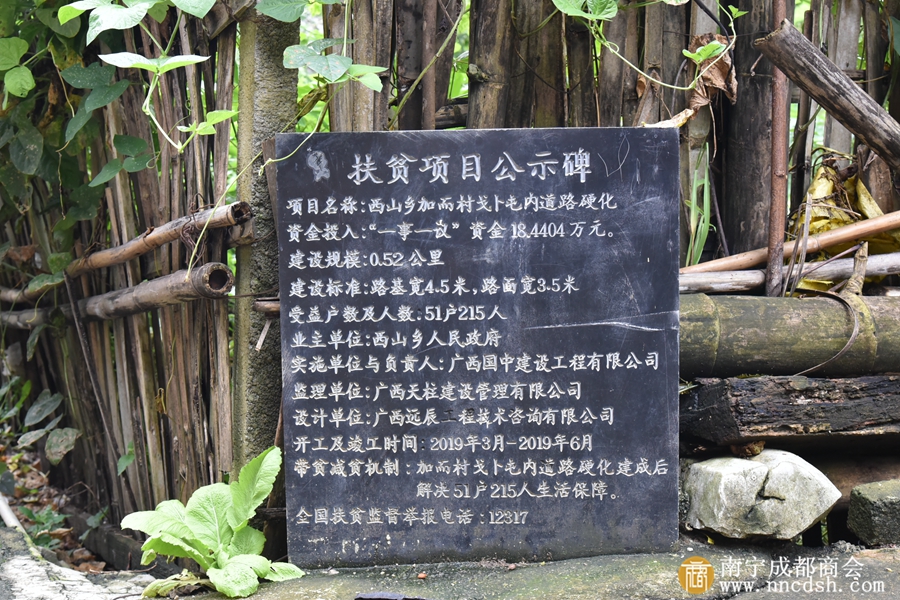 扶贫项目公示碑
项目名称:西山乡加而村戈卜屯内道路硬化
资金投入:“一事一议”资金18.4404万元。
建设规模:0.52公里
建设标准:路基宽4.5米,路面宽3.5米
受益户数及人数:51户215人
业主单位:西山乡人民政府
实施单位与负责人:广西国中建设工程有限公司
监理单位:广西天柱建设管理有限公司
设计单位:广西远辰工程技术咨询有限公司
开工及竣工时间:2019年3月-2019年6月
带贫减贫机制:加而村戈卜屯内道路硬化建成后
解决51户215人生活保障。
全国扶贫监督举报电话:12317
南宁成都商会
www.nncdsh.com